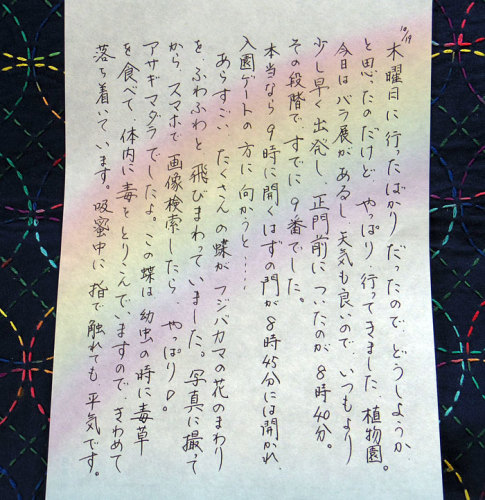 10/19
木曜日に行ったばかりだったので、どうしようか
と思ったのだけど、やっぱり行ってきました、植物園。
今日はバラ展があるし、天気も良いので、いつもより
少し早く出発し、正門前についたのが8時40分。
その段階で、すでに9番でした。
本当なら9時に開くはずの門が8時45分には開かれ、
入園ゲートの方に向かうと……
あらすごい、たくさんの蝶がフジバカマの花のまわり
を、ふわふわと飛びまわっていました。写真に撮って
から、スマホで画像検索したら、やっぱりね。
アサギマダラでしたよ。この蝶は幼虫の時に毒草
を食べて、体内に毒をとりこんでいますので、きわめて
落ち着いています。吸蜜中に指で触れても平気です。